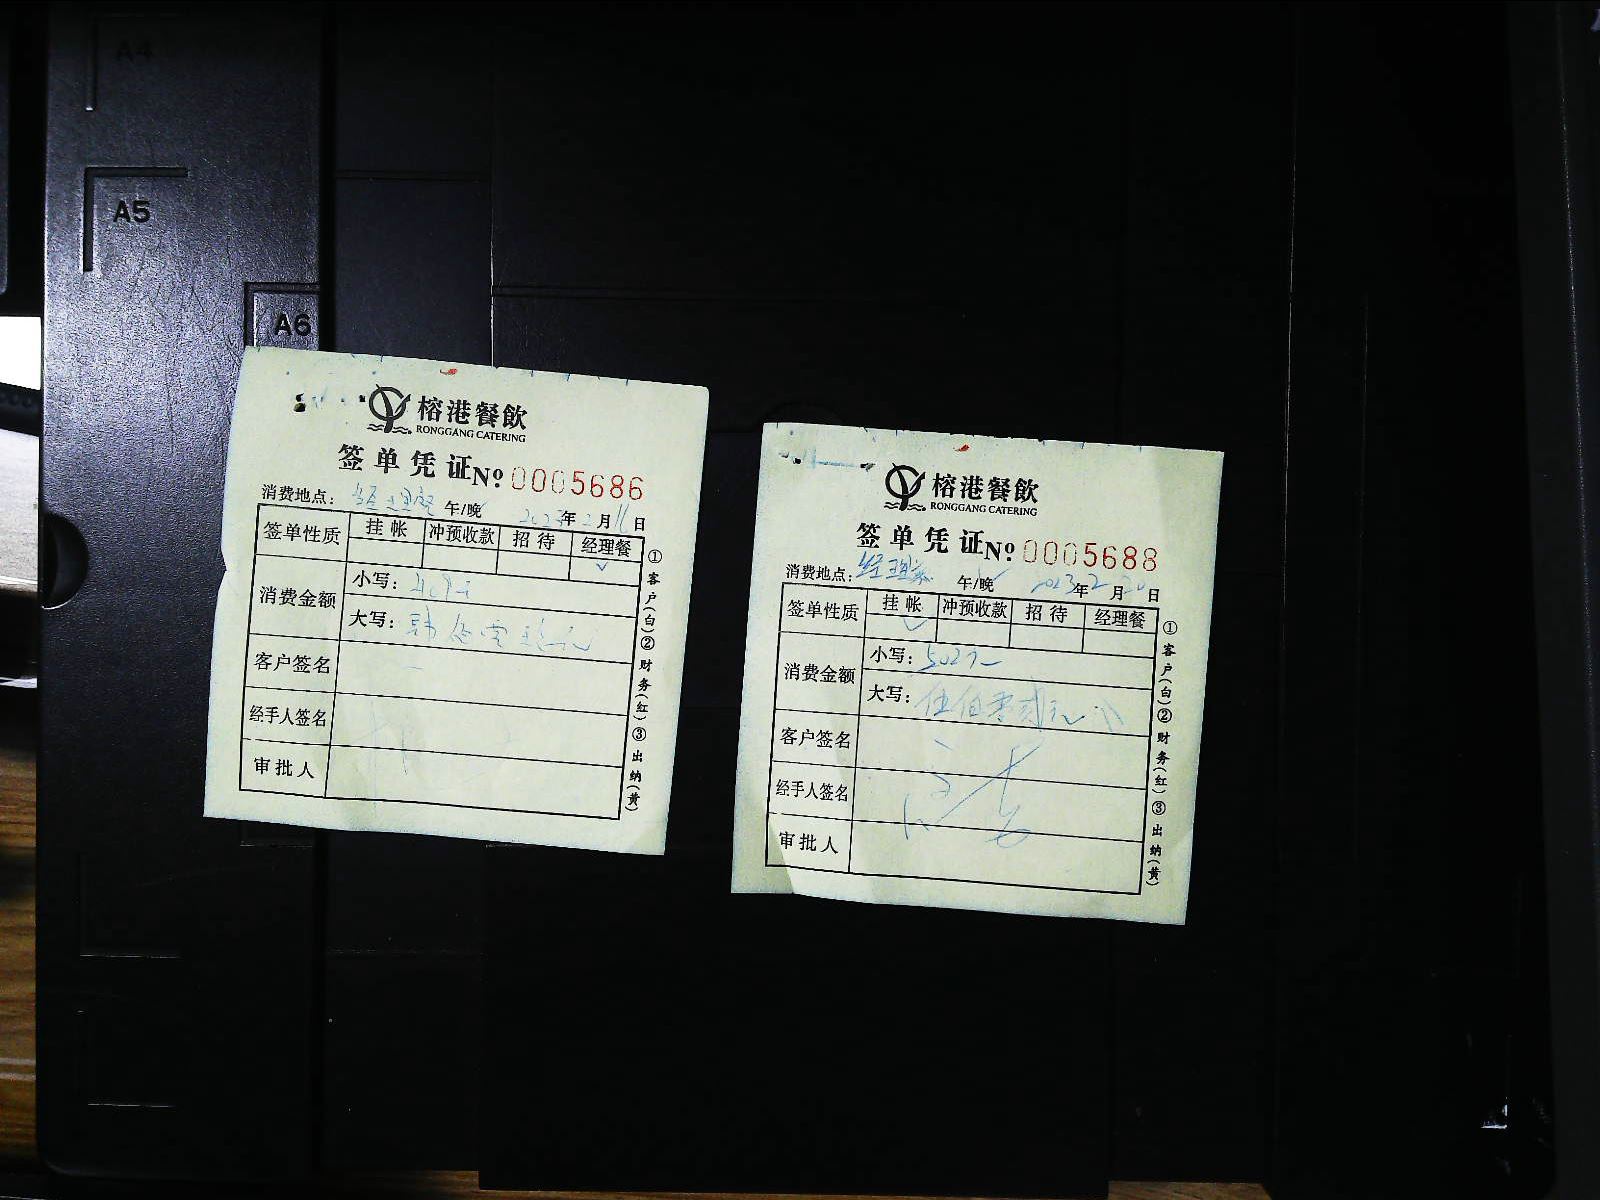 A4
A5
A6
榕港餐飲
RONGGANG CATERING
签单凭证 № 0005686
消费地点： 经理餐 午/晚 2023年2月11日
签单性质 挂帐 冲预收款 招待 经理餐
✓
消费金额 小写：
大写：
客户签名
经手人签名
审批人
①客户(白)②财务(红)③出纳(黄)
榕港餐飲
RONGGANG CATERING
签单凭证 № 0005688
消费地点： 经理餐 午/晚 2023年2月20日
签单性质 挂帐 冲预收款 招待 经理餐
✓
消费金额 小写： 502元
大写： 伍佰零贰元
客户签名
经手人签名
审批人
①客户(白)②财务(红)③出纳(黄)